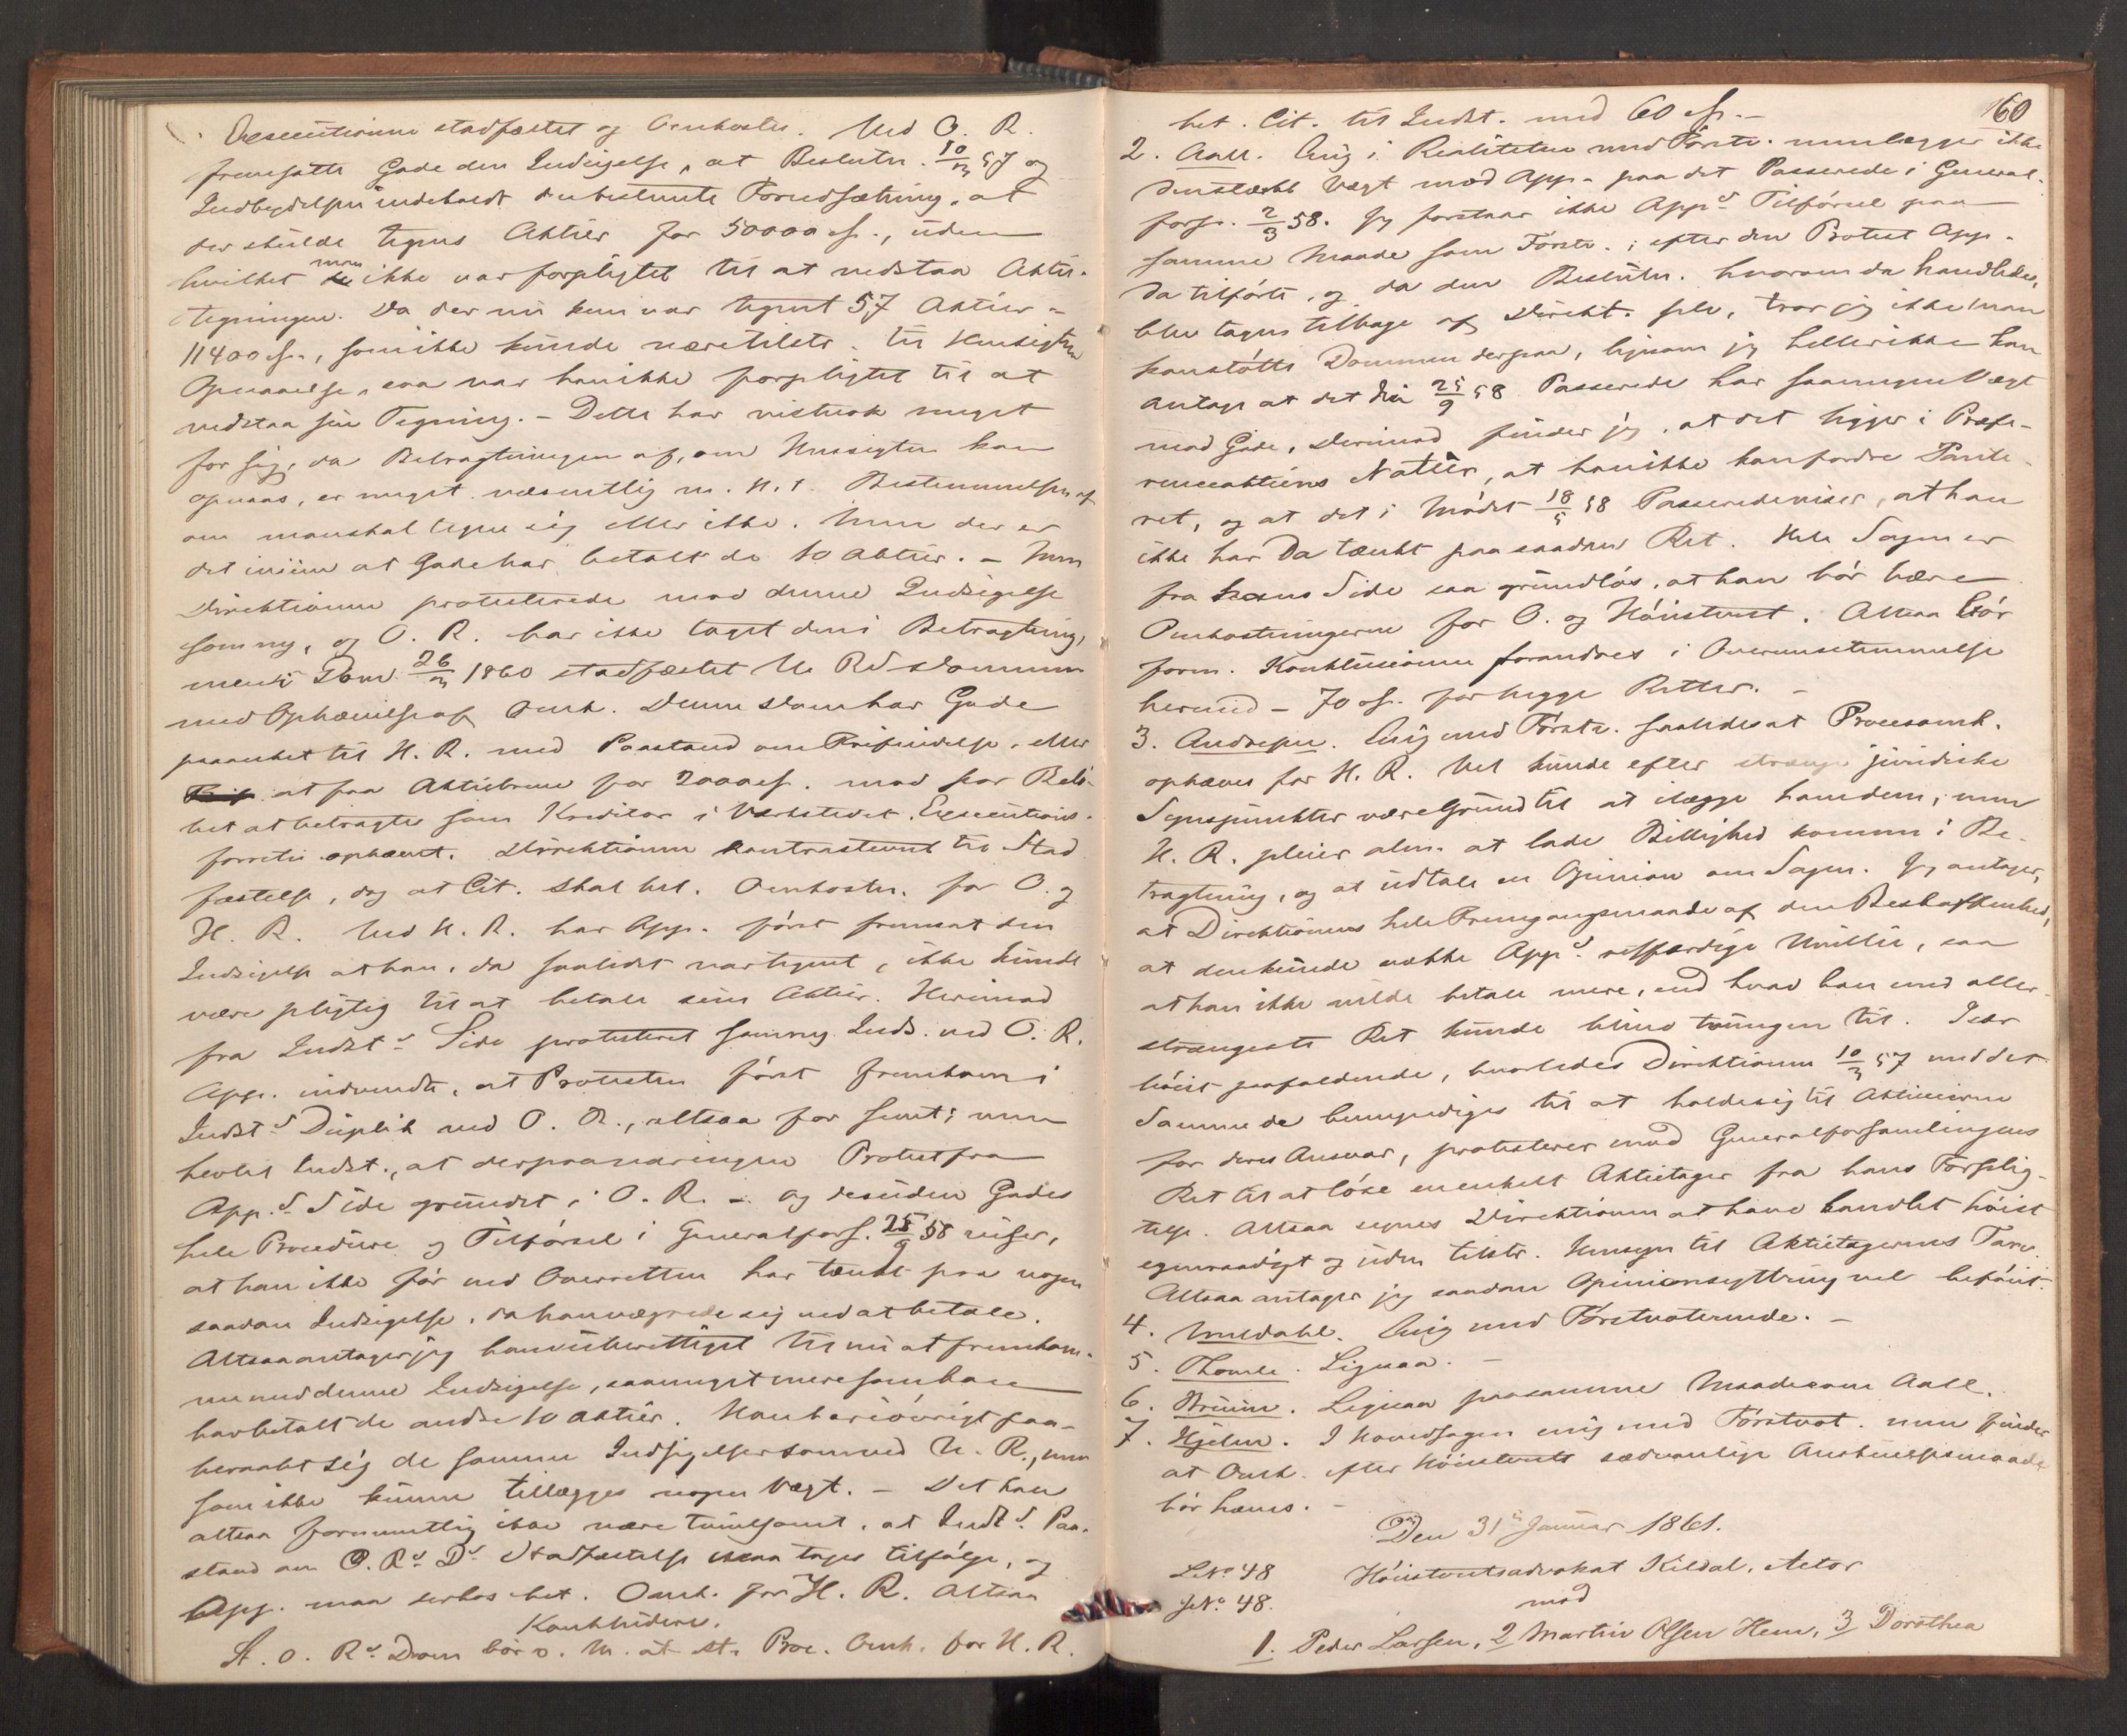 Executionen stadfæstet og Omkoster. Ved O. R.
fremsatte Gade den Indsigelse, at Beslutn. 10/3 57 og
Indbydelsen indeholdt den bestemte Forudsætning, at
der skulde tegnes Aktier for 50000 Sp., uden
hvilket man ikke var forpligtet til at vedstaa Aktie-
tegningen. Da der nu kun var tegnet 57 Aktier =
11400 Sp., som ikke kunde være tilstr. til Hensigtens
Opnaaelse, saa var han ikke forpligtet til at
vedstaa sin Tegning. – Dette har vistnok meget
for sig, da Betragtningen af, om Hensigten kan
opnaaes, er meget væsentlig m. H. t. Bestemmelsen af
om man skal tegne sig eller ikke. Men der er
det imod at Gade har betalt de 10 Aktier. – Men
Direktionen protesterede mod denne Indsigelse
som ny, og O. R. har ikke taget den i Betragtning,
men i Dom 26/3 1860 stadfæstet U. Rs Dommen
med Ophævelse af Omk. Denne Dom har Gade
paaanket til H. R. med Paastand om Frifindelse, eller
at faa Aktiebreve for 2000 Sp. mod for Belö-
bet at betragtes som Kreditor i Værkstedet. Executions-
forretn. ophævet. Direktionen kontrastevnet til Stad
fæstelse, dog at Cit. skal bet. Omkostn. for O. og
H. R. Ved H. R. har App. först fremsat den
Indsigelse at han, da saalidet var tegnet, ikke kunde
være pligtig til at betale sine Aktier. Herimod
fra Indsts Side protesteret som ny Inds. ved O. R.
App. indvendte, at Protesten först fremkom i
Indsts Duplik ved O. R., altsaa for sent; men
hertil Indst., at derpaa var ingen Protest fra
Apps Side grundet i O. R. – og desuden Gades
hele Procedure og Tilförsel i Generalfors. 25/9 58 viser,
at han ikke för ved Overretten har tænkt paa nogen
saadan Indsigelse, da han vægrede sig ved at betale.
Altsaa antager jeg han uberettiget til nu at fremkom-
me med denne Indsigelse, saameget mere som han
har betalt de andre 10 Aktier. Han har iövrigt paa-
beraabt sig de samme Indsigelser som ved U. R., men
som ikke kunne tillægges nogen Vægt. – Det kan
altsaa formentlig ikke være tvivlsomt, at Indsts Paa-
stand om O. Rs Ds Stadfæstelse maa tages tilfölge, og
App. maa derhos bet. Omk. for H. R. Altsaa
Konkludere.
St. O. Rs Dom bör v. M. at st. Proc. Omk. for H. R.
160
bet. Cit. til Indst. med 60 Sp. –
2. Aall. Enig i Realiteten med Förstv. men lægger ikke
den stærke Vægt mod App. paa det Passerede i General-
fors. 2/3 58. Jeg forstaar ikke Apps Tilförsel paa
samme Maade som Förstv.; efter den Protest App.
da tilförte, og da den Beslutn. hvorom da handledes,
blev tagen tilbage af Direkt. selv, tror jeg ikke man
kan stötte Dommen derpaa, ligesom jeg heller ikke kan
antage at det den 25/9 58 Passerede har saamegen Vægt
mod Gade, derimod finder jeg, at det ligger i Præfe-
renceaktiens Natur, at han ikke kan fordre Pante-
ret, og at det i Mödet 18/5 58 Passerede viser, at han
ikke har da tænkt paa saadan Ret. Hele Sagen er
fra hans Side saa grundlös, at han bör bære
Omkostningerne for O. og Höiesteret. Altsaa bör
form. Konklusionen forandres i Overensstemmelse
hermed – 70 Sp. for begge Retter. –
3. Andresen. Enig med Förstv. saaledes at Procesomk.
ophæves for H. R. Vel kunde efter strenge juridiske
Synspunkter være Grund til at ilægge ham dem; men
H. R. pleier alm. at lade Billighed komme i Be-
tragtning, og at udtale en Opinion om Sagen. Jeg antager,
at Direktionens hele Fremgangsmaade af den Beskaffenhed,
at den kunde vække Apps retfærdige Uvillie, saa
at han ikke vilde betale mere, end hvad han med aller-
strængeste Ret kunde blive tvungen til. Især
höist paafaldende, hvorledes Direktionen 10/3 57 med det
Samme de bemyndiges til at holde sig til Aktieeierne
for deres Ansvar, protesterer mod Generalforsamlingens
Ret til at löse en enkelt Aktietager fra hans Forplig-
telse. Altsaa synes Direktionen at have handlet höist
egenraadigt og uden tilstr. Hensyn til Aktietagernes Tarv.
Altsaa antager jeg saadan Opinionsyttring vel beföiet.
4. Mældahl. Enig med Förstvoterende. –
5. Thomle. Ligesaa. –
6. Bruun. Ligesaa paa samme Maade som Aall.
7. Hjelm. I Hovedsagen enig med Förstvot. men finder
at Omk. efter Höiesterets sædvanlige Anskuelsesmaade
bör hæves. –
Den 31te Januar 1861.
LNo 48 Höiesteretsadvokat Kildal, Actor
JNo 48. mod
1. Peder Larsen, 2 Martin Olsen Hem, 3 Dorothea